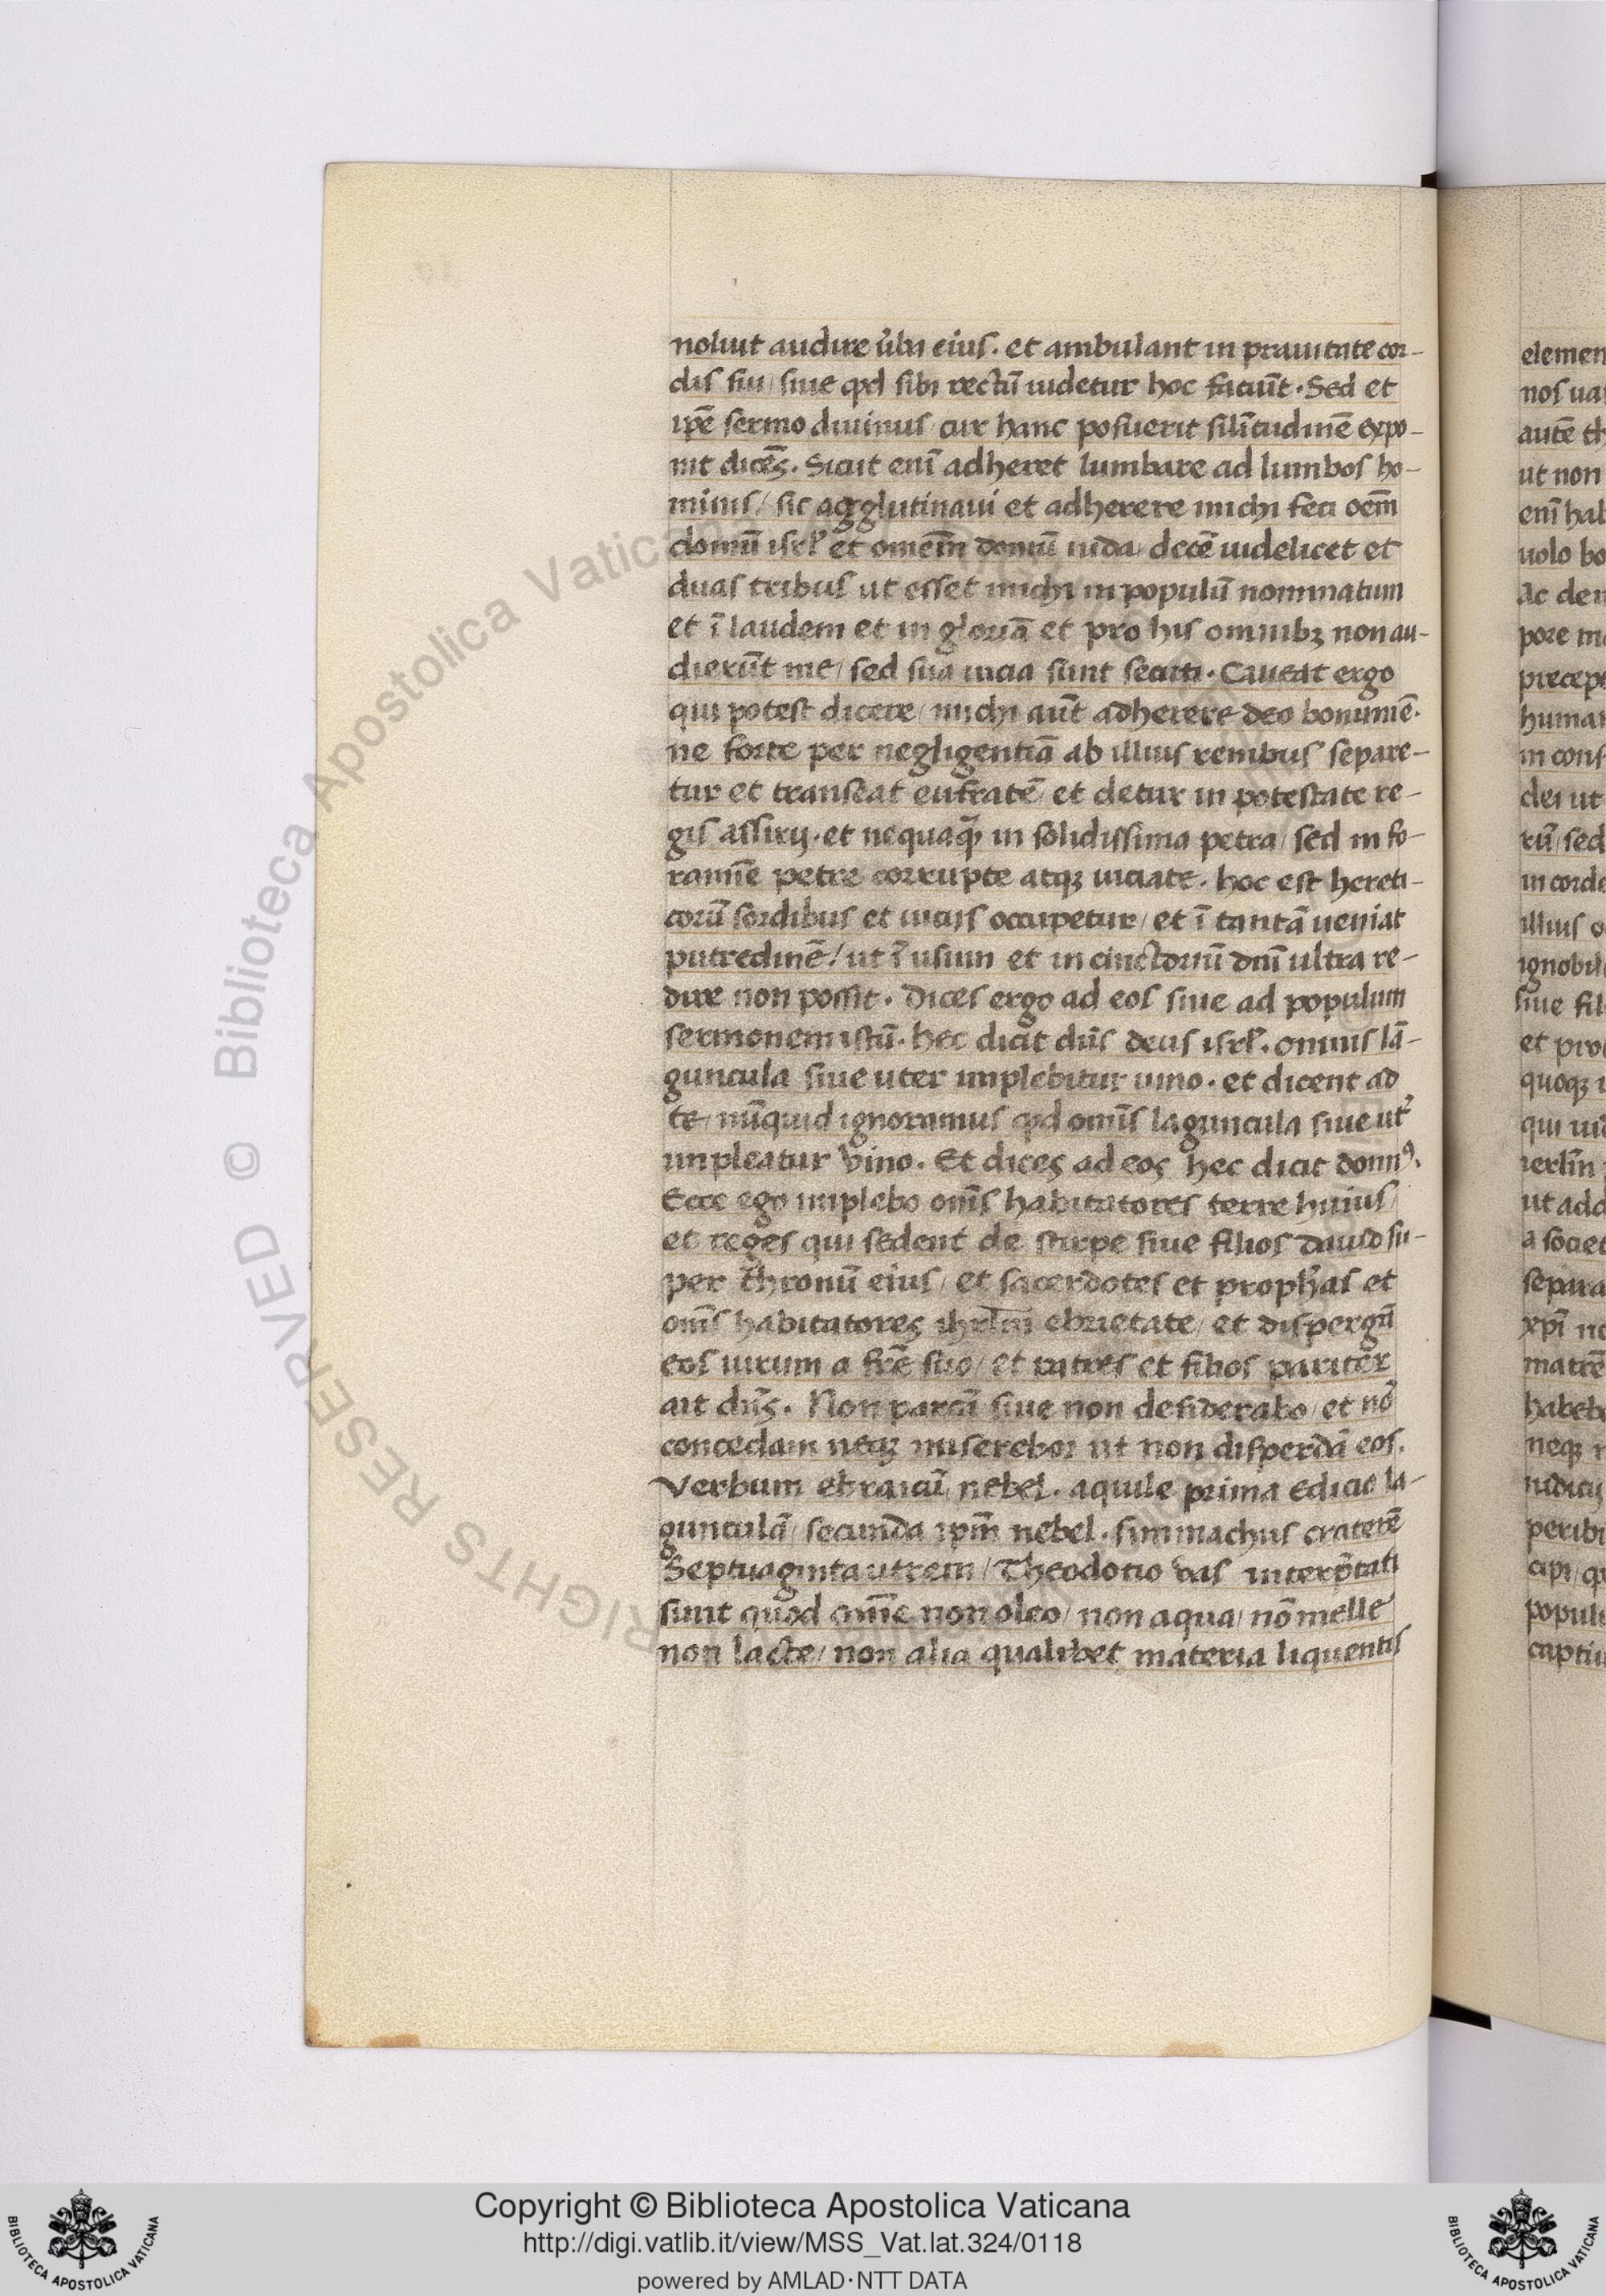 noluit audire ũba eius. et ambulant in prauitate cor-
dis sui/ siue qđ sibi rectũ uidetur hoc faciũt. Sed et
ipẽ sermo diuinus/ cur hanc posuerit silĩtudinẽ expo-
nit dicẽs. Sicut enĩ adheret lumbare ad lumbos ho-
minis/ sic agglutinaui et adherere michi feci oem̃
domũ isrl̃ et omem̃ domũ iuda/ decẽ uidelicet et
duas tribus ut esset michi in populũ nominatum
et ĩ laudem et in gloriã et pro his omnibꝫ non au-
dierũt me/ sed sua uicia sunt secuti. Caueat ergo
qui potest dicere/ michi aũt adherere deo bonum ẽ.
ne forte per negligentiã ab illius renibus separe-
tur et transeat eufratẽ et detur in potestate re-
gis assirij. et nequaꝙ̃ in solidissima petra/ sed in fo-
ramĩe petre corrupte atqꝫ uiciate. hoc est hereti-
corũ sordibus et uicijs occupetur/ et ĩ tantã ueniat
putredinẽ/ ut ĩ usum et in cinctoriũ dñi ultra re-
dire non possit. Dices ergo ad eos siue ad populum
sermonem istũ. hec dicit dñs deus isrl̃. omnis lã-
guncula siue uter implebitur uino. et dicent ad
te/ nũquid ignoramus qđ omĩs laguncula siue ut᷑
impleatur vino. Et dices ad eos hec dicit domnꝰ.
Ecce ego implebo omĩs habitatores terre huius/
et reges qui sedent de stirpe siue filios dauid su-
per thronũ eius/ et sacerdotes et proph̃as et
omĩs habitatores ihrlm̃ ebrietate/ et dispergã
eos uirum a frẽ suo/ et patres et filios pariter
ait dñs. Non parcã siue non desiderabo/ et nõ
concedam neqꝫ miserebor ut non disperdã eos.
Verbum ebraicũ/ nebel. aquile prima edicio la-
gunculã/ secunda ipm̃ nebel. simmachus craterẽ
Septuaginta utrem/ Theodotio vas interp̃tati
sunt quod omĩe non oleo/ non aqua/ nõ melle
non lacte/ non alia qualibet materia liquentis
elemen
nos ua
autẽ th
ut non
enĩ hab
uolo bo
Ac den
pore m
precep
human
in cons
dei ut
rũ/ sed
in corde
illius o
ignobil
siue fil
et pro
quoqꝫ i
qui uid
ierl̃m
ut add
a societ
separa
xp̃i no
matrẽ
habeb
neqꝫ n
iudicij
peribi
cipi/ q
popul
captiu
Biblioteca Apostolica Vaticana
RIGHTS RESERVED ©
Copyright © Biblioteca Apostolica Vaticana
http://digi.vatlib.it/view/MSS_Vat.lat.324/0118
powered by AMLAD·NTT DATA
BIBLIOTECA APOSTOLICA VATICANA
BIBLIOTECA APOSTOLICA VATICANA